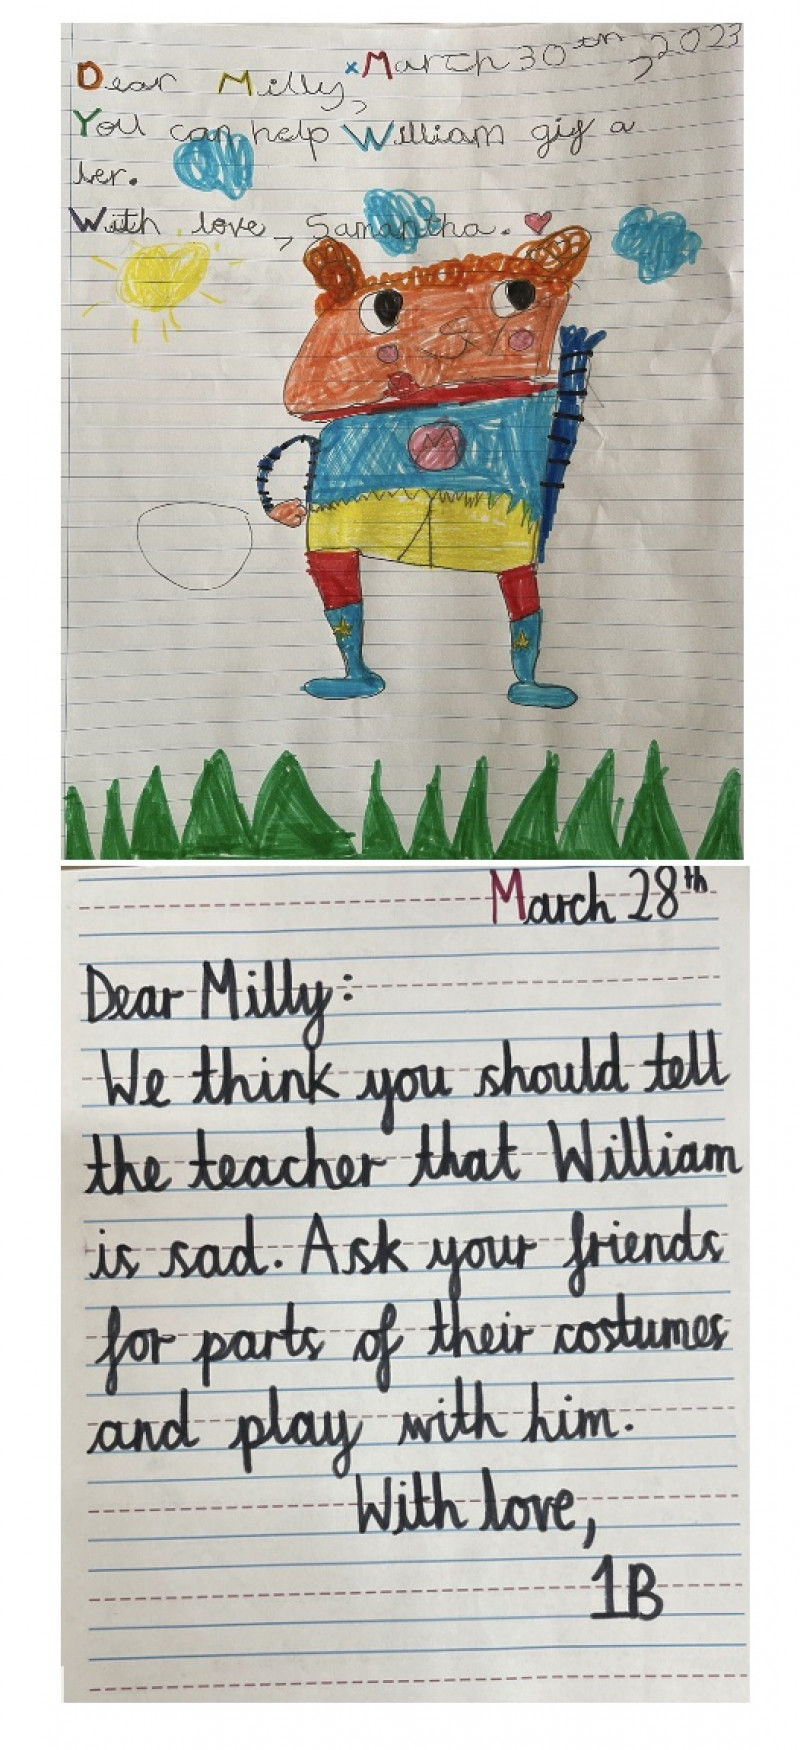 March 30th, 2023
Dear Milly,
You can help William gig a
ber.
With love, Samantha.
M
March 28th
Dear Milly:
We think you should tell
the teacher that William
is sad. Ask your friends
for parts of their costumes
and play with him.
With love,
1B